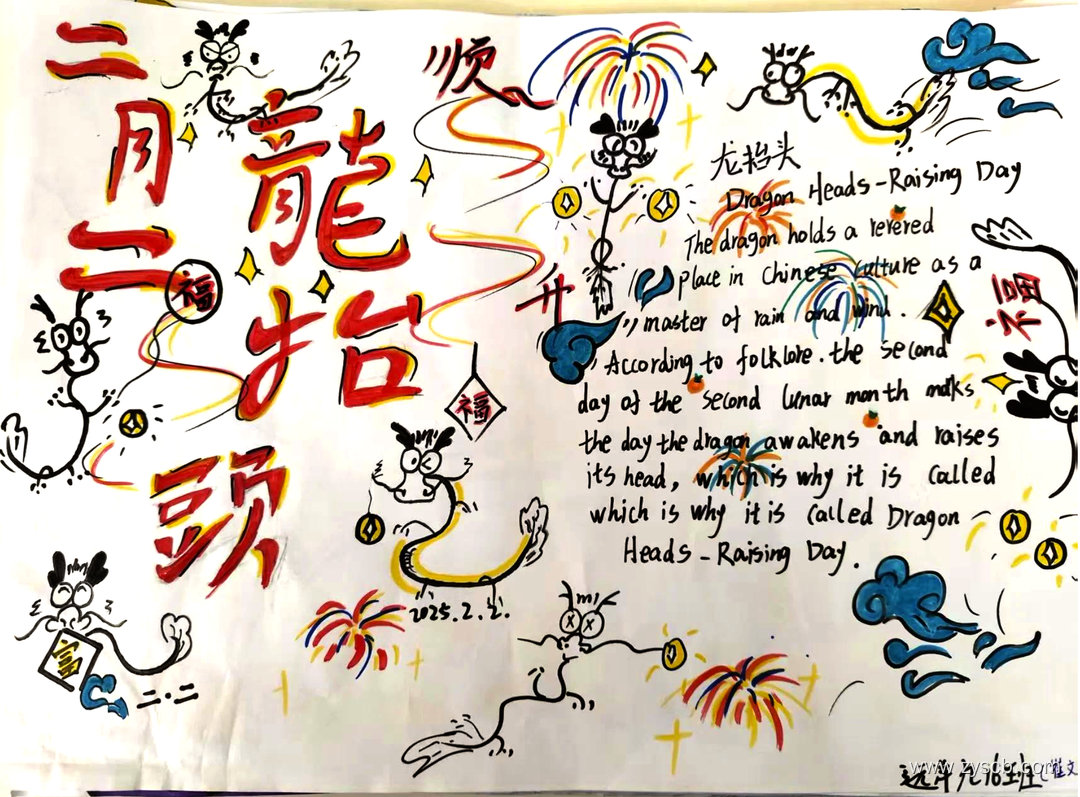 二月二
龍抬頭
顺
升
福
福
福
富
二·二
2025.2.2.
龙抬头
Dragon Heads-Raising Day
The dragon holds a revered
place in Chinese culture as a
master of rain and wind.
According to folklore. the second
day of the second lunar month maks
the day the dragon awakens and raises
its head, which is why it is Called
which is why it is Called Dragon
Heads-Raising Day.